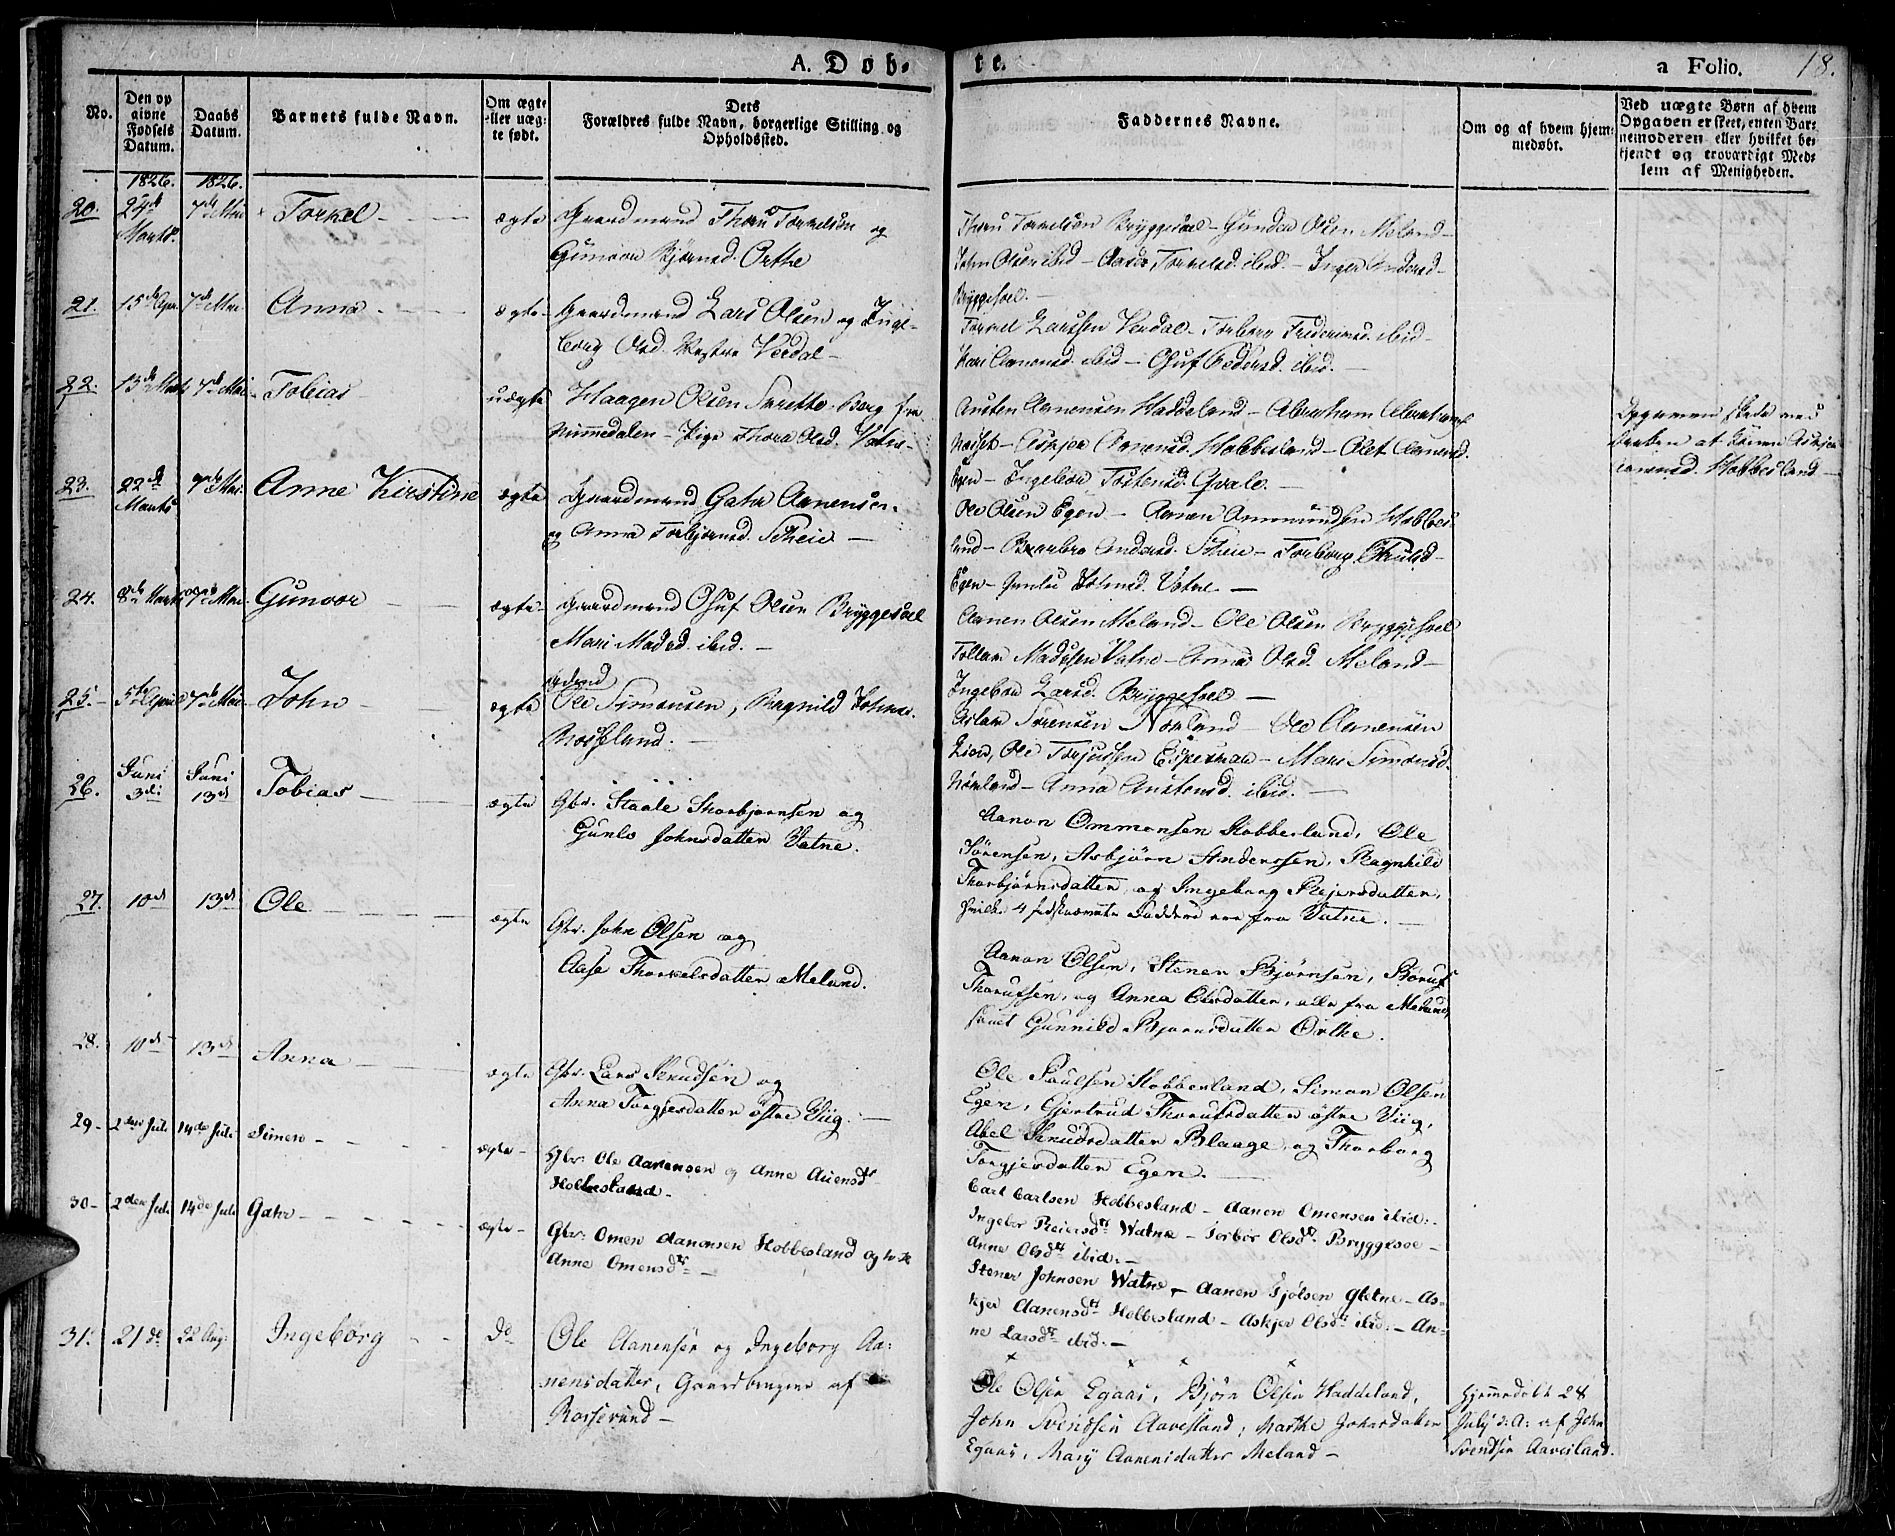 A. Døb- te.
a Folio. 18.
No.
Den op
givne
Fødsels
Datum.
Daabs
Datum.
Barnets fulde Navn.
Om ægte
eller uæg-
te født.
Ders
Forældres fulde Navn, borgerlige Stilling og
Opholdssted.
Faddernes Navne.
Om og af hvem hjem-
medøbt.
Ved uægte Børn af hvem
Opgaven er skeet, enten Bar-
nemoderen eller hvilket be-
kjendt og troværdigt Med-
lem af Menigheden.
1826. 1826.
20. 24de Marts. 7de Mai Torkel - ægte Gaardmand Thoru Torkelsen og
Gunvor Bjørnsd. Orthe
Thoru Torkelsen Bryggesæl - Gunder Olsen Meland -
John Olsen ibid - Aase Torkelsd. ibid. - Inger Andersd -
Bryggesæl. -
21. 15de Apr. 7de Mai. Anna - ægte - Gaardmand Lars Olsen og Inge-
borg Olsd. Verdal -
Torkel Larssen Verdal - Torborg ibid -
Kari Aanensd. ibid - Osuf Pedersd. ibid. -
22. 13de Marts 7de Mai - Tobias uægte Haagen Olsen Berg fra
Nummedalen - Pige Thora Olsd. Vatne -
Austen Aanensen Haddeland - Abraham
Askjer Aanensd. Hobbesland - Olet Aanensd.
Egen - Ingebor Tostensd. Qvale. -
Opgaven skede ved
at Askjer
Aanensd. Hobbesland -
23. 22de Marts 7de Mai. Anne Kirstine ægte Gaardmand Gahr Aanensen.
og Anna Torbjørnsd. Scheie -
Ole Olsen Egen - Aanen Ommundsen Hobbes-
land - Barbro Andersd. Scheie - Torborg -
Egen - Gunlu Johnsd. Vatne. -
24. 8de Marts 7de Mai. Gunvor - ægte - Gaardmand Osuf Olsen Bryggesæl
Mari Madsd. ibid. -
Aanen Olsen Meland - Ole Olsen Bryggesæl
Tollev Madssen Vatne - Anna Olsd. Meland -
Ingebor Larsd. Bryggesæl -
25. 5te April 7de Mai John - ægte Ole Simonsen, Ragnild Johns.
Rosseland. -
Aslak Sørensen Nørland - Ole Aanensen
Lien, Ole Torjussen Espermoe - Mari Simonsd.
Nørland - Anna Austensd. ibid. -
26. Juni 3die Juni 13de Tobias - ægte Gbr. Staale Thorbjørnsen og
Gunlo Johnsdatter Vatne.
Aanon Ommonsen Hobbesland, Ole
Sørensen, Asbjørn Anderssen, Ragnhild
Thorbjørnsdatter, og Ingeborg Reiersdatter,
hvilke 4 sidstnævnte Faddere ere fra Vatne. -
27. 10de 13de Ole - ægte Gbr. John Olsen og
Aase Thorkelsdatter Meland.
Aanon Olsen, Stener Bjørnsen,
Thorufsen, og Anna Olsdatter, alle fra Meland,
samt Gunnild Bjørnsdatter Orthe.
28. 10de 13de Anna - ægte Gbr. Lars Knudsen og
Anna Torgjersdatter østre Viig. -
Ole Poulsen Hobbesland, Simon Olsen
Egen, Gjertrud Thorufsdatter østre Viig,
Abel Knudsdatter Blaage, og Thorborg
Torgjersdatter Egen. -
29 - 2den Juli 14de Juli Simen - ægte - Gbr: Ole Aanensen og Anne Auensdt
Hobbesland -
Carl Carlsen Hobbesland - Aanon Omensen ibid: -
Ingebor Reiersdt Watne - Torbor Olsdt Bryggesoe -
Anne Olsdt ibid: -
30 - 2den Juli 14de Juli Gahr - ægte - Gbr: Omen Aanonsen Hobbesland og
Anne Omensdt -
Stener Johnsen Watne - Aanen Gjølsen Gletne - As-
kjer Aanensdt Hobbesland - Askjer Olsdt ibid: - An-
ne Larsdt ibid: -
31. 21de 22 Aug: Ingeborg - do Ole Aanensen og Ingeborg Aa-
nensdatter, Gaardbrugere af
Rosseland -
Ole Olsen Egaas, Bjørn Olsen Haddeland,
John Svendsen Aavesland, Marthe Johnsdatter
Egaas, Mary Aanensdatter Meland -
Hjemmedøbt 28
July d: A: af John
Svendsen Aavesland.